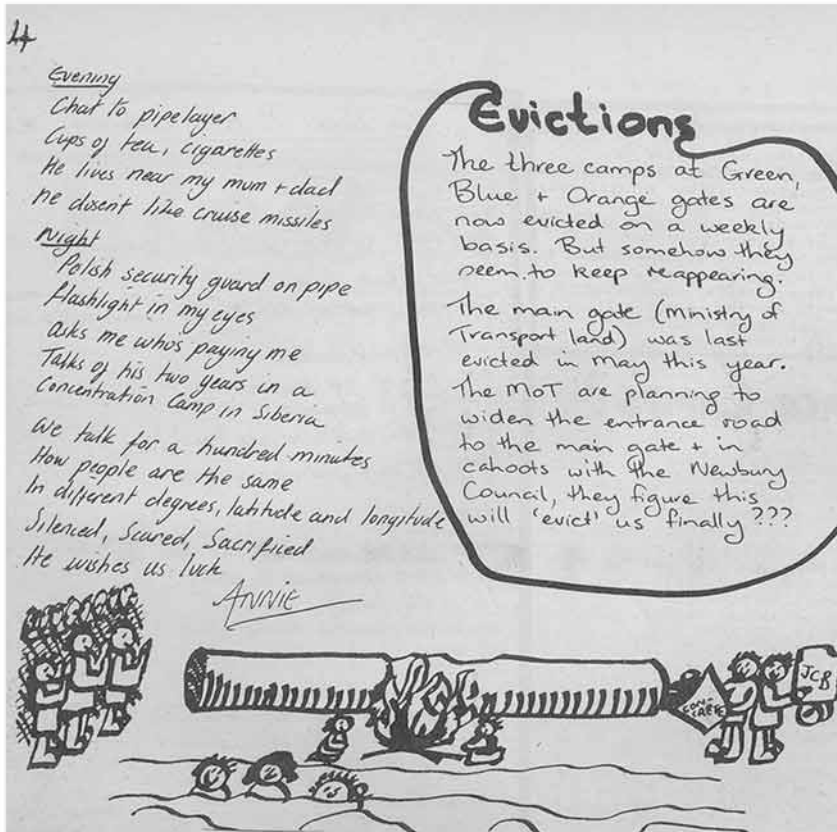 4
Evening
Chat to pipelayer
Cups of tea, cigarettes
He lives near my mum + dad
he dusen't like cruise missiles
Night
Polish security guard on pipe
flashlight in my eyes
asks me who's paying me
Talks of his two years in a
Concentration Camp in Siberia
We talk for a hundred minutes
How people are the same
In different degrees, latitude and longitude
Silenced, Scared, Sacrificed
He wishes us luck
ANNIE
Evictions
The three camps at Green,
Blue + Orange gates are
now evicted on a weekly
basis. But somehow they
seem to keep reappearing.
The main gate (Ministry of
Transport land) was last
evicted in may this year.
The MoT are planning to
widen the entrance road
to the main gate + in
cahoots with the Newbury
Council, they figure this
will 'evict' us finally ???
JCB